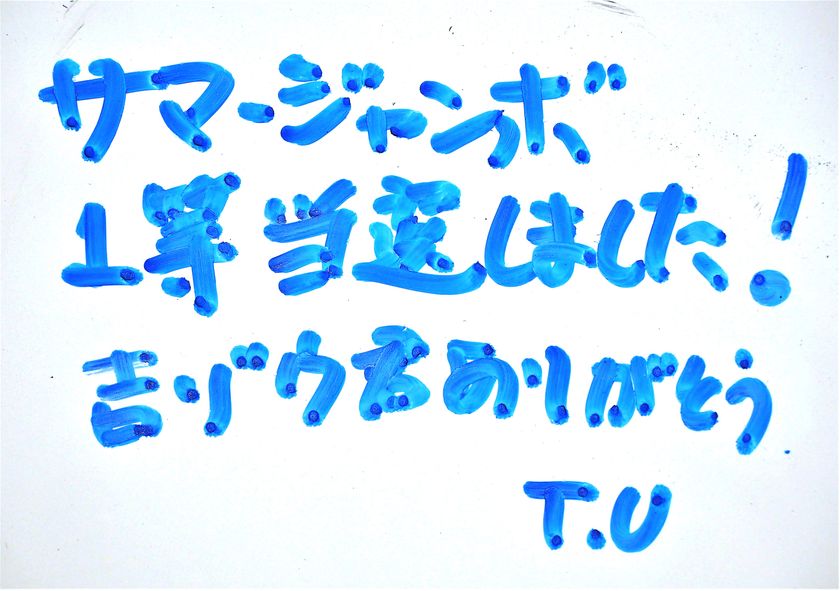 サマージャンボ
1等当選しました!
吉ゾウくんありがとう
T.U